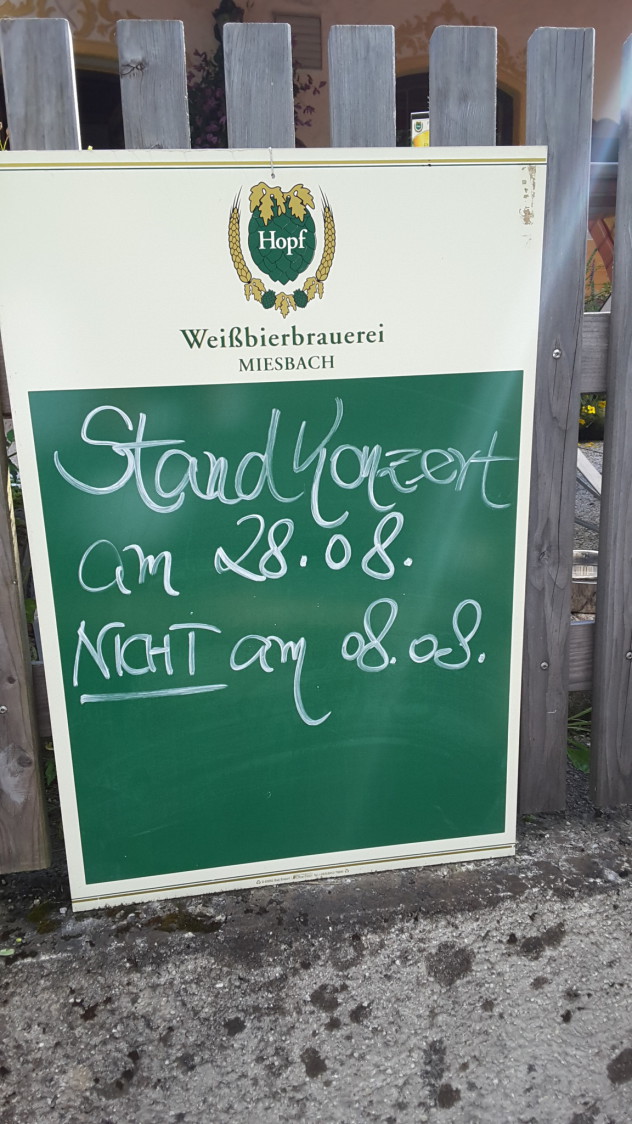 Hopf
Weißbierbrauerei
MIESBACH
Standkonzert
am 28.08.
NICHT am 08.08.